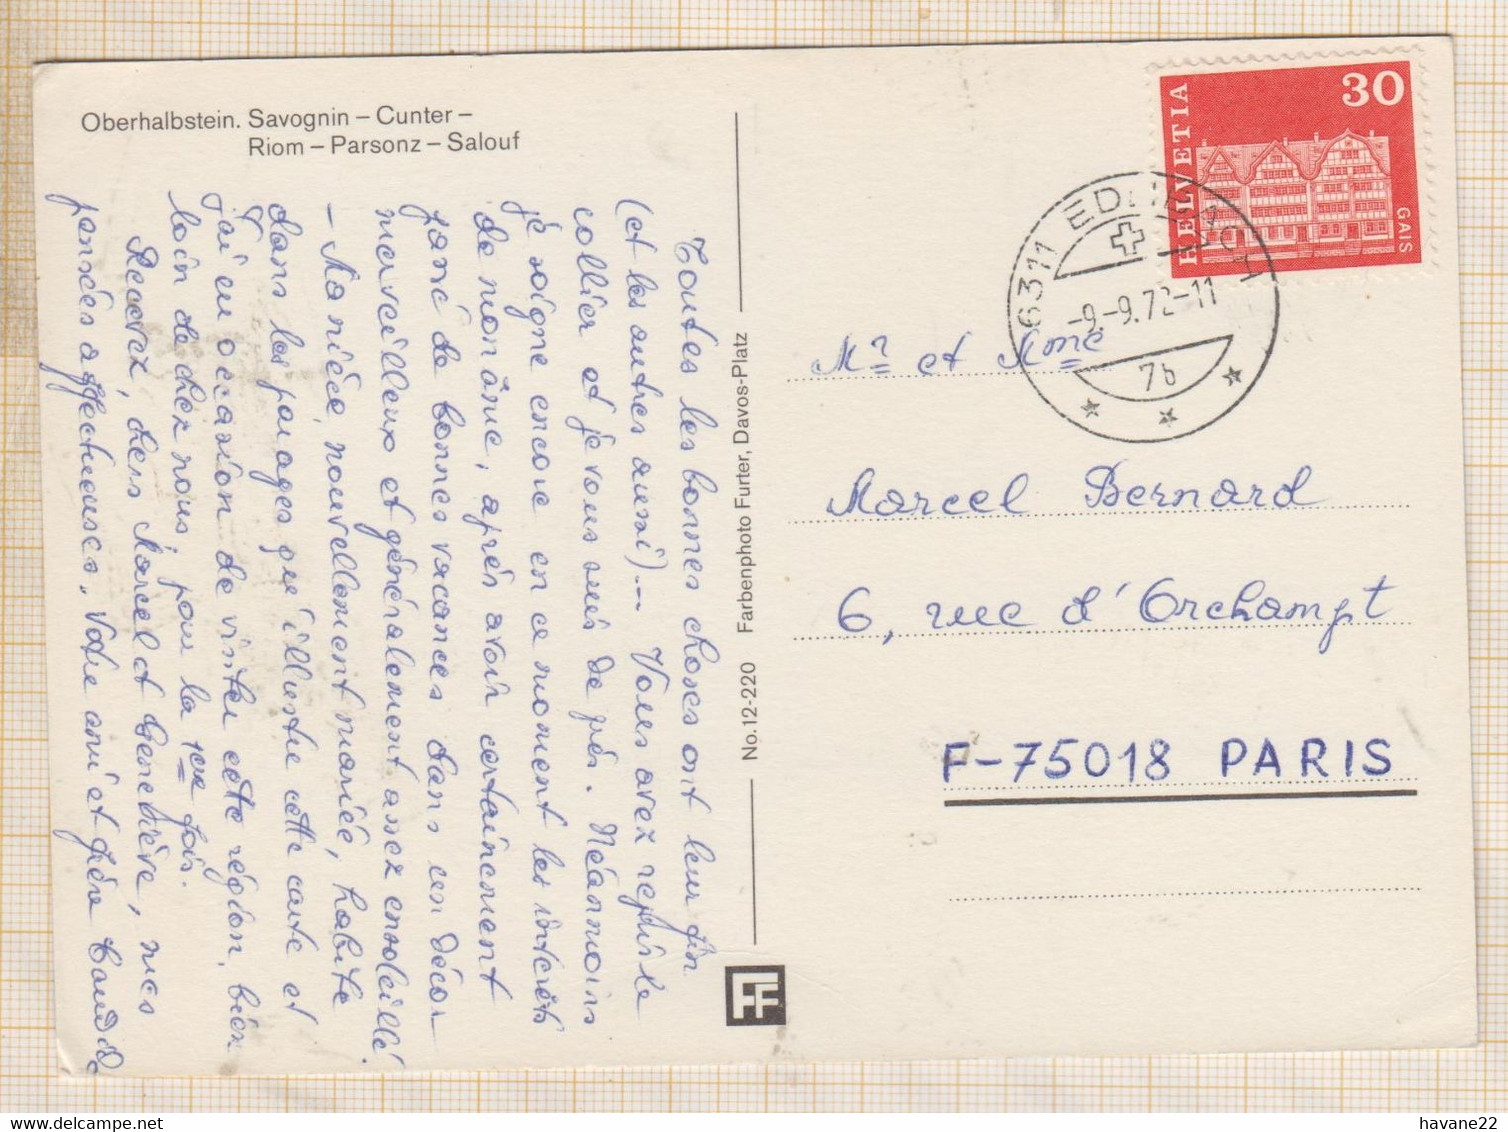 Oberhalbstein. Savognin – Cunter –
Riom – Parsonz – Salouf
Toutes les bonnes choses ont leur fin
(et les autres aussi)... Vous avez repris le
collier et je vous suis de près. Néanmoins
je soigne encore en ce moment les intérêts
de mon âme, après avoir certainement
passé de bonnes vacances dans un décor
merveilleux et généralement assez ensoleillé.
– Ma nièce, nouvellement mariée, habite
dans les parages qu'illustre cette carte et
j'ai eu occasion de visiter cette région, bien
loin de chez nous, pour la 1ere fois.
Recevez, chers Marcel et Geneviève, mes
pensées affectueuses. Votre ami et frère
No. 12-220 Farbenphoto Furter, Davos-Platz
FF
HELVETIA
30
GAIS
6311 EDLIBACH
-9.-9.72-11
7b
Mr et Mme
Marcel Bernard
6, rue d'Orchampt
F-75018 PARIS
havane22